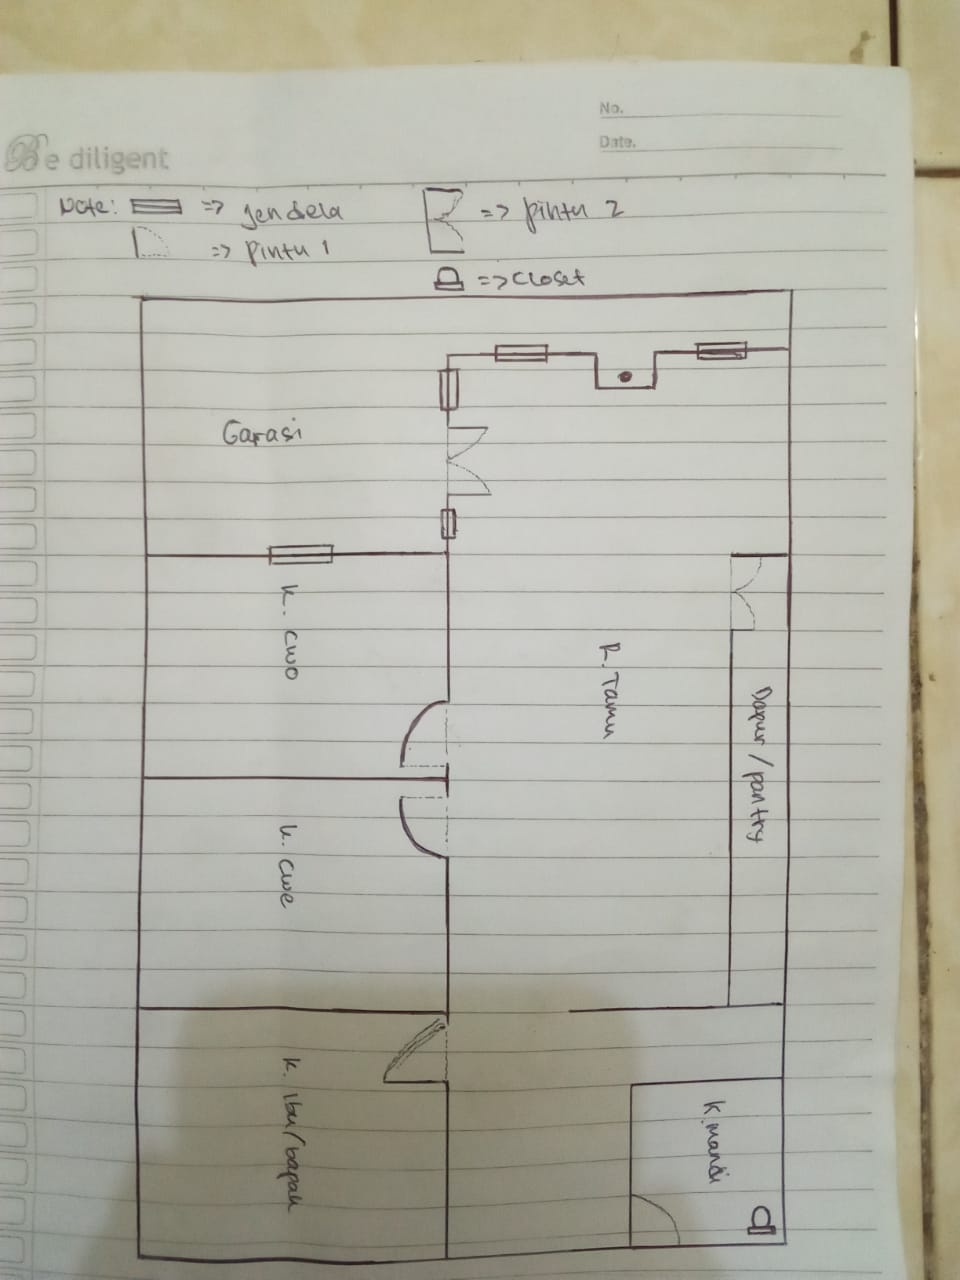 No.
Date.
Be diligent
Note: => jendela
=> pintu 2
=> pintu 1
=> closet
Garasi
K. cwo
R. Tamu
Dapur / pantry
k. cwe
k. ibu/bapak
K. mandi